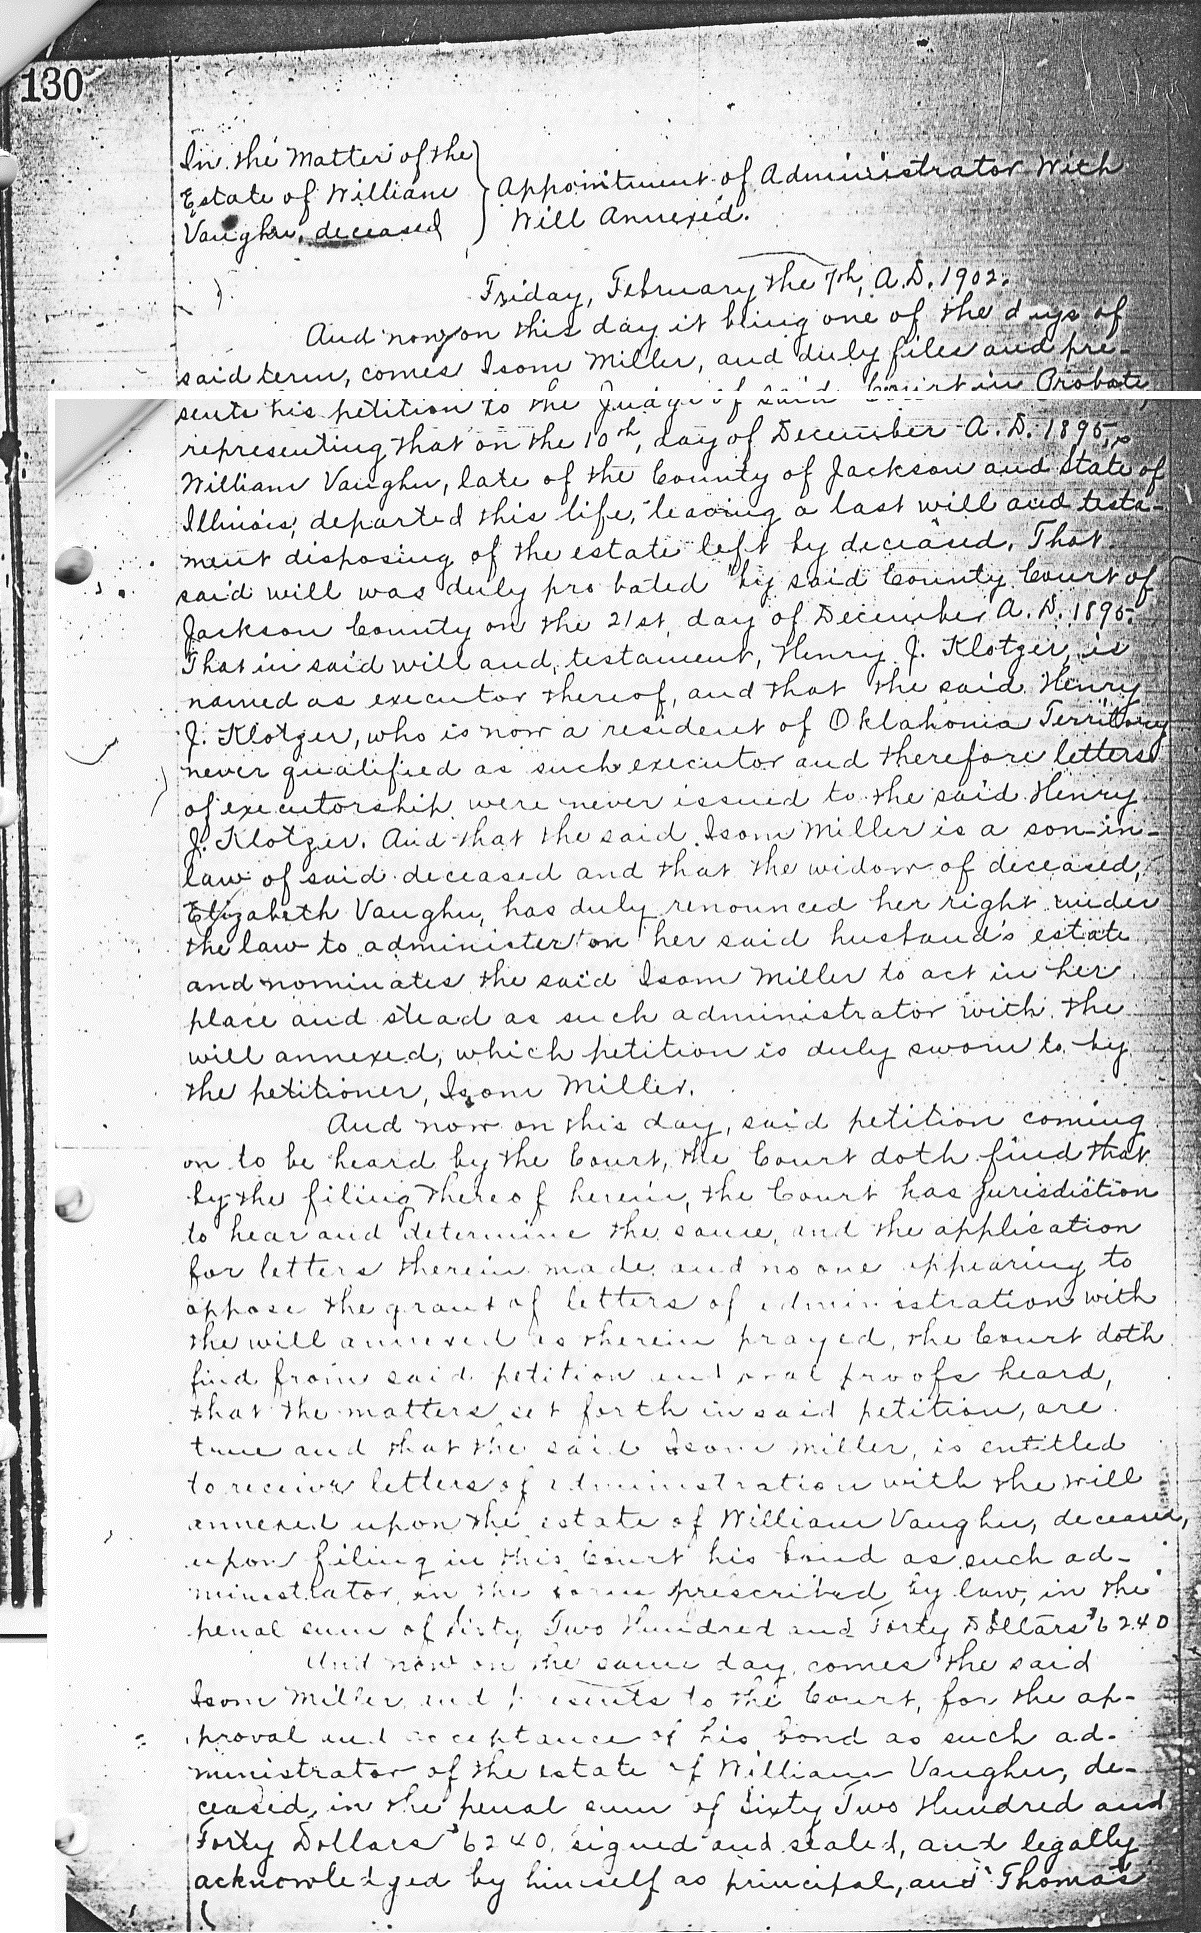 130
In the Matter of the
Estate of William
Vaughn, deceased
Appointment of Administrator With
Will Annexed.
Friday, February the 7th, A.D. 1902.
And now on this day it being one of the days of
said term, comes Isom Miller, and duly files and pre-
sents his petition to the Judge of said Court in Probate,
representing that on the 10th, day of December A.D. 1895,
William Vaughn, late of the County of Jackson and State of
Illinois, departed this life, leaving a last will and testa-
ment disposing of the estate left by deceased. That
said will was duly probated by said County Court of
Jackson County on the 21st, day of December A.D. 1895.
That in said will and testament, Henry J. Klotzer, is
named as executor thereof, and that the said Henry
J. Klotzer, who is now a resident of Oklahoma Territory
never qualified as such executor and therefore letters
of executorship were never issued to the said Henry
J. Klotzer. And that the said Isom Miller is a son-in-
law of said deceased and that the widow of deceased,
Elizabeth Vaughn, has duly renounced her right under
the law to administer on her said husband's estate
and nominates the said Isom Miller to act in her
place and stead as such administrator with the
will annexed, which petition is duly sworn to by
the petitioner, Isom Miller.
And now on this day, said petition coming
on to be heard by the Court, the Court doth find that
by the filing thereof herein, the Court has jurisdiction
to hear and determine the same, and the application
for letters therein made and no one appearing to
oppose the grant of letters of administration with
the will annexed as therein prayed, the Court doth
find from said petition and oral proofs heard,
that the matters set forth in said petition, are
true and that the said Isom Miller, is entitled
to receive letters of administration with the will
annexed upon the estate of William Vaughn, deceased,
upon filing in this Court his bond as such ad-
ministrator in the form prescribed by law, in the
penal sum of Sixty Two Hundred and Forty Dollars $6240
And now on the same day, comes the said
Isom Miller and presents to the Court, for the ap-
proval and acceptance of his bond as such ad-
ministrator of the estate of William Vaughn, de-
ceased, in the penal sum of Sixty Two Hundred and
Forty Dollars $6240. signed and sealed, and legally
acknowledged by himself as principal, and Thomas